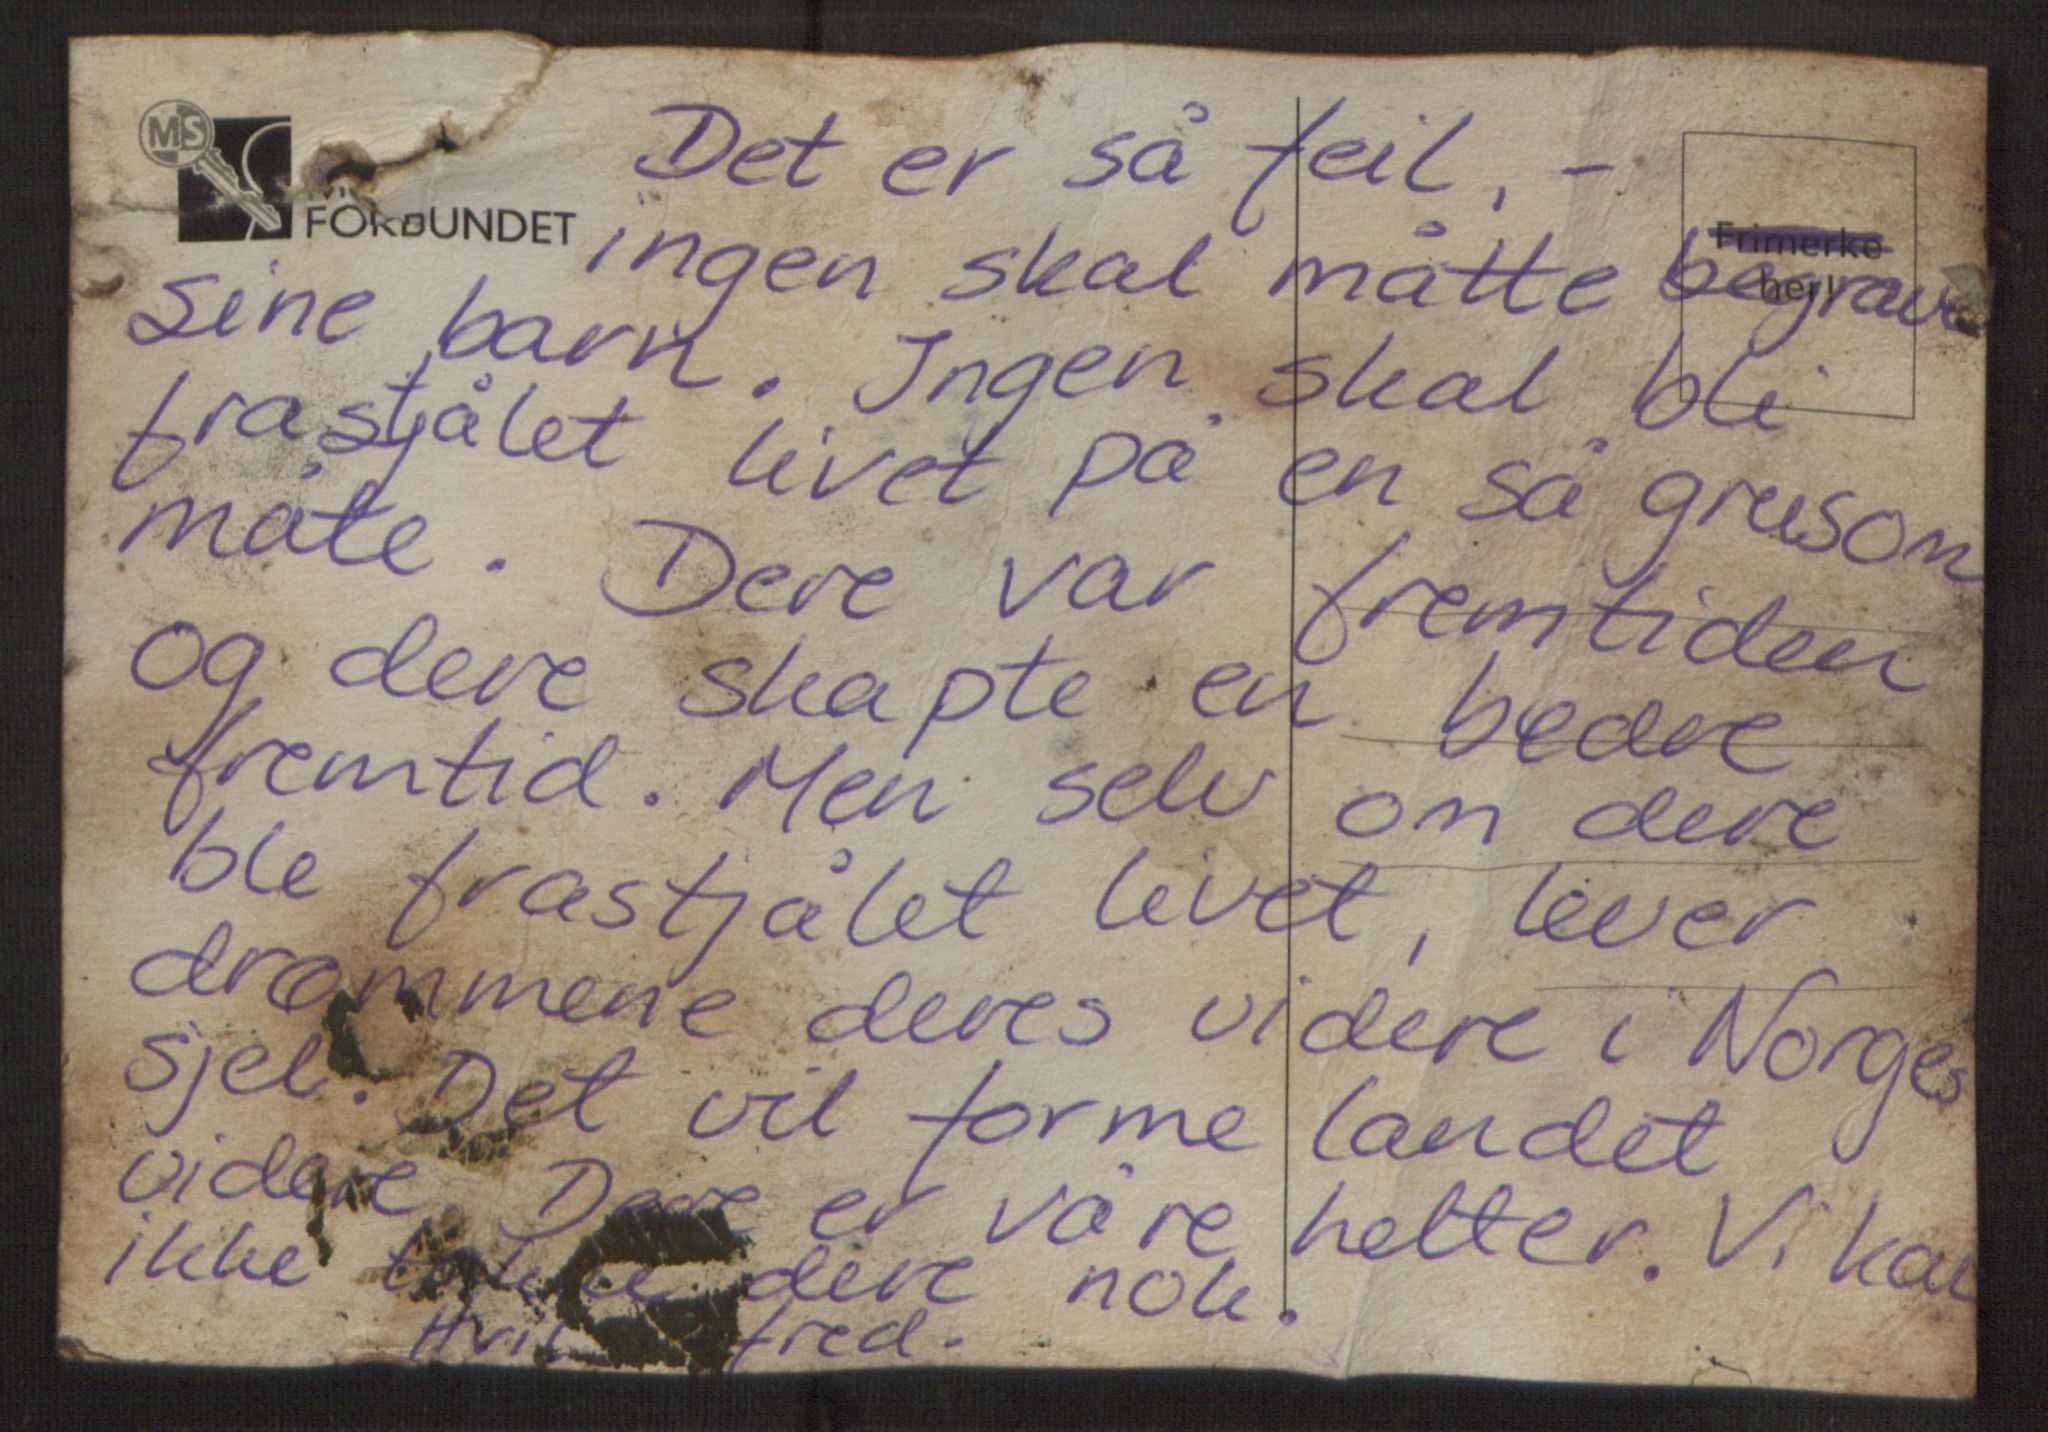 MS
FORBUNDET
Frimerke
her!
Det er så feil, -
ingen skal måtte begrave
sine barn. Ingen skal bli
frastjålet livet på en så grusom
måte. Dere var fremtiden
og dere skapte en bedre
fremtid. Men selv om dere
ble frastjålet livet, lever
drømmene deres videre i Norges
sjel. Det vil forme landet
videre. Dere er våre helter. Vi kan
ikke takke dere nok.
Hvil fred.